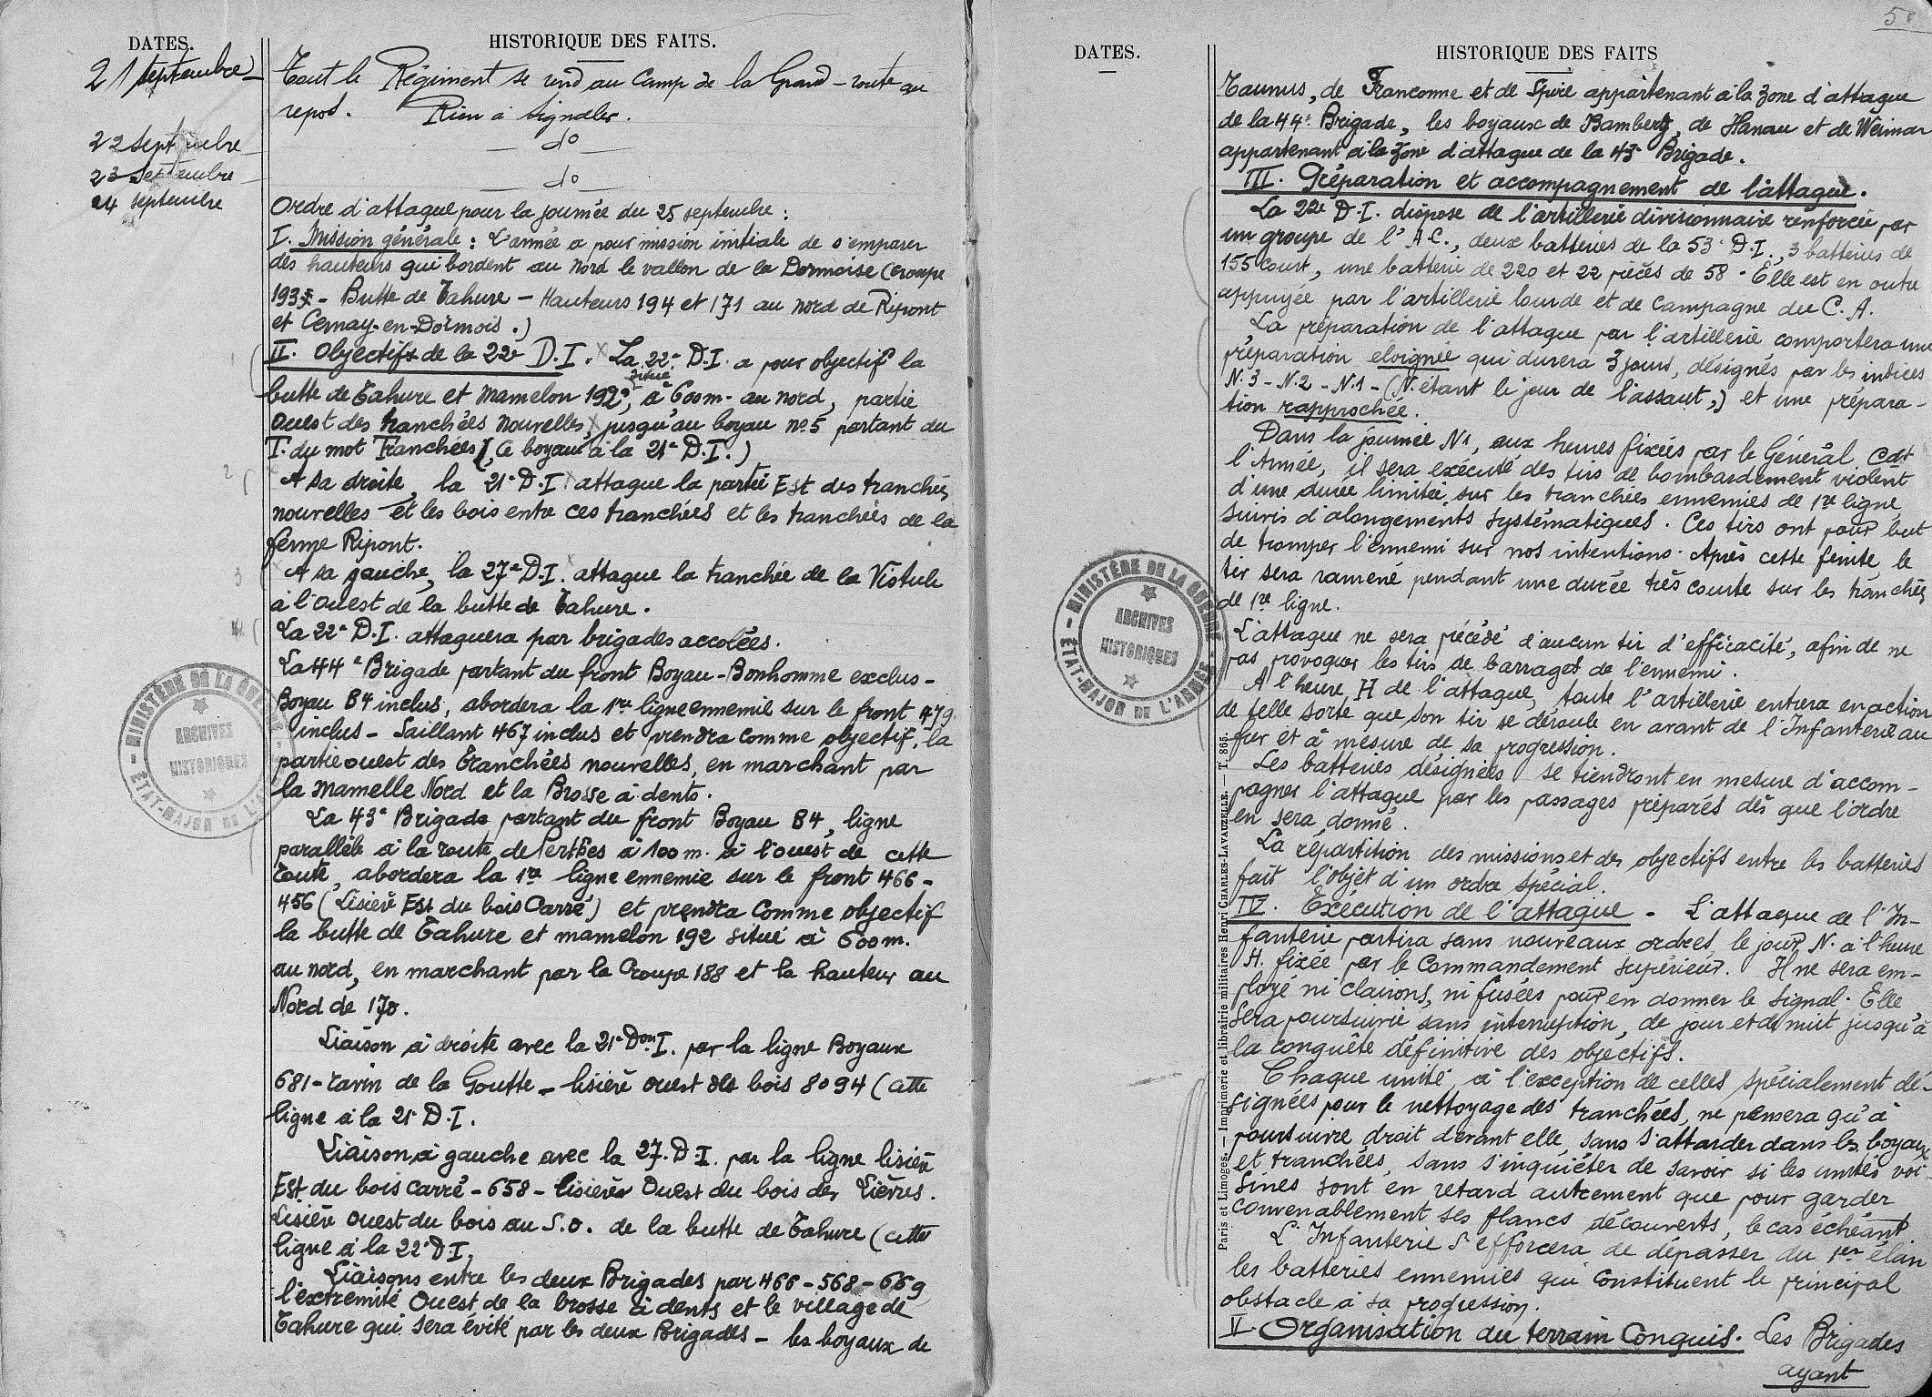 DATES.
HISTORIQUE DES FAITS.
21 septembre
Tout le Régiment se rend au Camp de la Grand-route au
repos. Rien à signaler.
22 septembre
— do —
23 septembre
— do —
24 septembre
Ordre d'attaque pour la journée du 25 septembre :
I. Mission générale : L'armée a pour mission initiale de s'emparer
des hauteurs qui bordent au Nord le vallon de la Dormoise (croupe
193 - Butte de Tahure - Hauteurs 194 et 171 au nord de Ripont
et Cernay-en-Dormois.)
II. Objectifs de la 22e D.I. La 22e D.I. a pour objectif la
butte de Tahure et Mamelon 192, situé à 600m. au nord, partie
ouest des tranchées nouvelles, jusqu'au boyau no 5 partant du
T. du mot Tranchées (Ce boyau à la 21e D.I.)
A sa droite, la 21e D.I. attaque la partie Est des tranchées
nouvelles et les bois entre ces tranchées et les tranchées de la
ferme Ripont.
A sa gauche, la 27e D.I. attaque la tranchée de la Vistule
à l'ouest de la butte de Tahure.
La 22e D.I. attaquera par brigades accolées.
La 44e Brigade partant du front Boyau-Bonhomme exclus-
Boyau B4 inclus, abordera la 1re ligne ennemie sur le front 479
inclus - Saillant 467 inclus et prendra comme objectif, la
partie ouest des tranchées nouvelles, en marchant par
la Mamelle Nord et la Brosse à dents.
La 43e Brigade partant du front Boyau B4, ligne
parallèle à la route de Perthes à 100m. à l'ouest de cette
route, abordera la 1re ligne ennemie sur le front 466-
456 (Lisière Est du bois Carré) et prendra comme objectif
la butte de Tahure et mamelon 192 situé à 600m.
au nord, en marchant par la Croupe 188 et la hauteur au
Nord de 170.
Liaison à droite avec la 21e Don I. par la ligne Boyaux
681 - ravin de la Goutte - lisière ouest des bois 8094 (cette
ligne à la 21e D.I.
Liaison à gauche avec la 27. D.I. par la ligne lisière
Est du bois carré - 658 - lisière Ouest du bois des Lièvres.
Lisière ouest du bois au S.O. de la butte de Tahure (cette
ligne à la 22e D.I.
Liaisons entre les deux Brigades par 466 - 568 - 669
l'extrémité Ouest de la brosse à dents et le village de
Tahure qui sera évité par les deux Brigades - les boyaux de
MINISTÈRE DE LA GUERRE
ARCHIVES
HISTORIQUES
ÉTAT-MAJOR DE L'ARMÉE
DATES.
HISTORIQUE DES FAITS
Taunus, de Franconne et de Spire appartenant à la zone d'attaque
de la 44e Brigade, les boyaux de Bamberg, de Hanau et de Weimar
appartenant à la zone d'attaque de la 43e Brigade.
III. Préparation et accompagnement de l'attaque.
La 22e D.I. dispose de l'artillerie divisionnaire renforcée par
un groupe de l'A.C., deux batteries de la 53e D.I., 3 batteries de
155 court, une batterie de 220 et 22 pièces de 58. Elle est en outre
appuyée par l'artillerie lourde et de campagne du C.A.
La préparation de l'attaque par l'artillerie comportera une
préparation eloignée qui durera 3 jours, désignés par les indices
N.3 - N.2 - N.1 - (N. étant le jour de l'assaut,) et une prépara-
tion rapprochée.
Dans la journée N1, aux heures fixées par le Général Cdt
l'Armée, il sera exécuté des tirs de bombardement violent
d'une durée limitée sur les tranchées ennemies de 1re ligne,
suivis d'alongements systématiques. Ces tirs ont pour but
de tromper l'ennemi sur nos intentions. Après cette feinte, le
tir sera ramené pendant une durée très courte sur les tranchées
de 1re ligne.
L'attaque ne sera précédé d'aucun tir d'efficacité, afin de ne
pas provoquer les tirs de barrages de l'ennemi.
A l'heure H de l'attaque, toute l'artillerie entrera en action
de telle sorte que son tir se déroule en avant de l'Infanterie au
fur et à mesure de sa progression.
Les batteries désignées se tiendront en mesure d'accom-
pagner l'attaque par les passages préparés dès que l'ordre
en sera donné.
La répartition des missions et des objectifs entre les batteries
fait l'objet d'un ordre spécial.
IV. Exécution de l'attaque - L'attaque de l'In-
fanterie partira sans nouveaux ordres, le jour N. à l'heure
H. fixée par le Commandement supérieur. Il ne sera em-
ployé ni clairons, ni fusées pour en donner le signal. Elle
sera poursuivie sans interruption, de jour et de nuit jusqu'à
la conquête définitive des objectifs.
Chaque unité, à l'exception de celles spécialement dé-
signées pour le nettoyage des tranchées, ne pensera qu'à
poursuivre droit devant elle, sans s'attarder dans les boyaux
et tranchées, sans s'inquiéter de savoir si les unités voi-
sines sont en retard autrement que pour garder
convenablement ses flancs découverts, le cas échéant
L'Infanterie s'efforcera de dépasser du 1er élan
les batteries ennemies qui constituent le principal
obstacle à sa progression.
V. Organisation du terrain Conquis. Les Brigades
ayant
MINISTÈRE DE LA GUERRE
ARCHIVES
HISTORIQUES
ÉTAT-MAJOR DE L'ARMÉE
Paris et Limoges. — Imprimerie et librairie militaires Henri CHARLES-LAVAUZELLE. — T. 865.